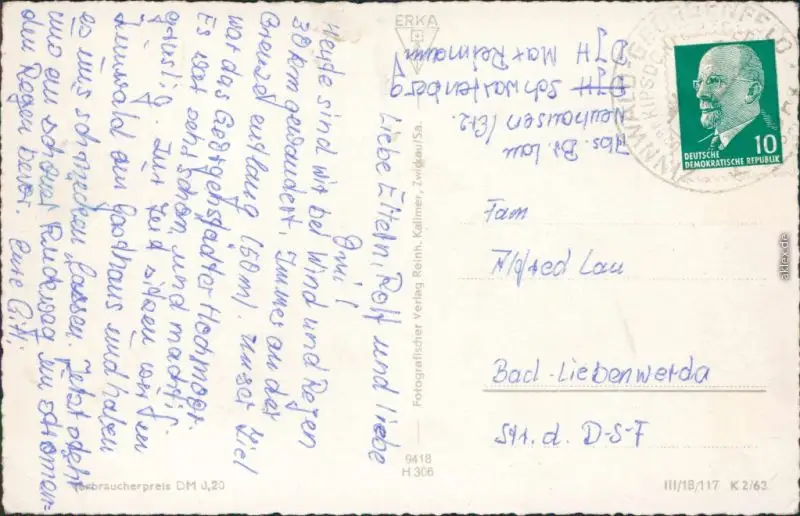 Liebe Eltern, Rolf und liebe
Omi!
Heute sind wir bei Wind und Regen
30 km gewandert. Immer an der
Grenze entlang (50 m). Unser Ziel
war das Georgenstädter Hochmoor.
Es war sehr schön und mächtig
gruslig. Zur Zeit sitzen wir in
Zinnwald am Gasthaus und haben
es uns schmecken lassen. Jetzt steht
uns ein schöner Rückweg im strömen-
den Regen bevor. Eure Gitti
ERKA
Abs. Br. Lau
Neuhausen / Erz.
DJH Schwartenberg
DJH Max Reimann
10
DEUTSCHE
DEMOKRATISCHE REPUBLIK
Fam
Alfred Lau
Bad-Liebenwerda
Str. d. D-S-F
Fotografischer Verlag Reinh. Kallmer, Zwickau/Sa.
9418
H 306
Verbraucherpreis DM 0,20
III/18/117 K 2/62
aklex.de